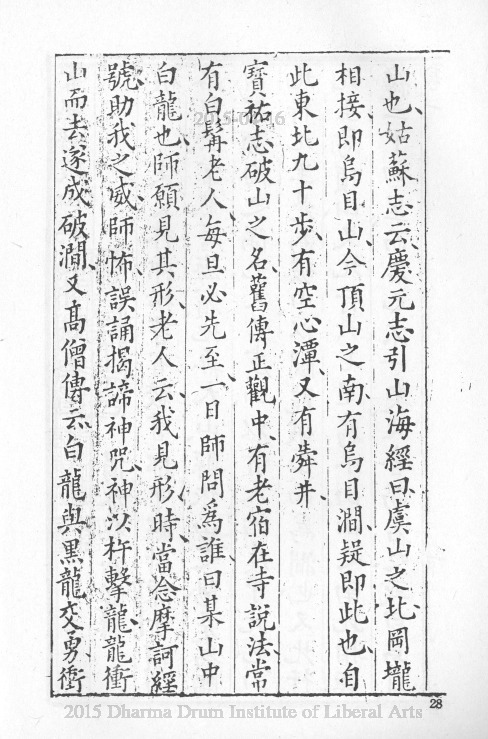 山也姑蘇志云慶元志引山海經曰虞山之北岡壠
相接即烏目山今頂山之南有烏目澗疑即此也自
此東北九十步有空心潭又有舜井
寶祐志破山之名舊傳正觀中有老宿在寺說法常
有白髯老人每旦必先至一日師問爲誰曰某山中
白龍也師願見其形老人云我見形時當念摩訶經
號助我之威師怖誤誦揭諦神咒神以杵擊龍龍衝
山而去遂成破澗又高僧傳云白龍與黑龍交勇衝
28
2015 Dharma Drum Institute of Liberal Arts